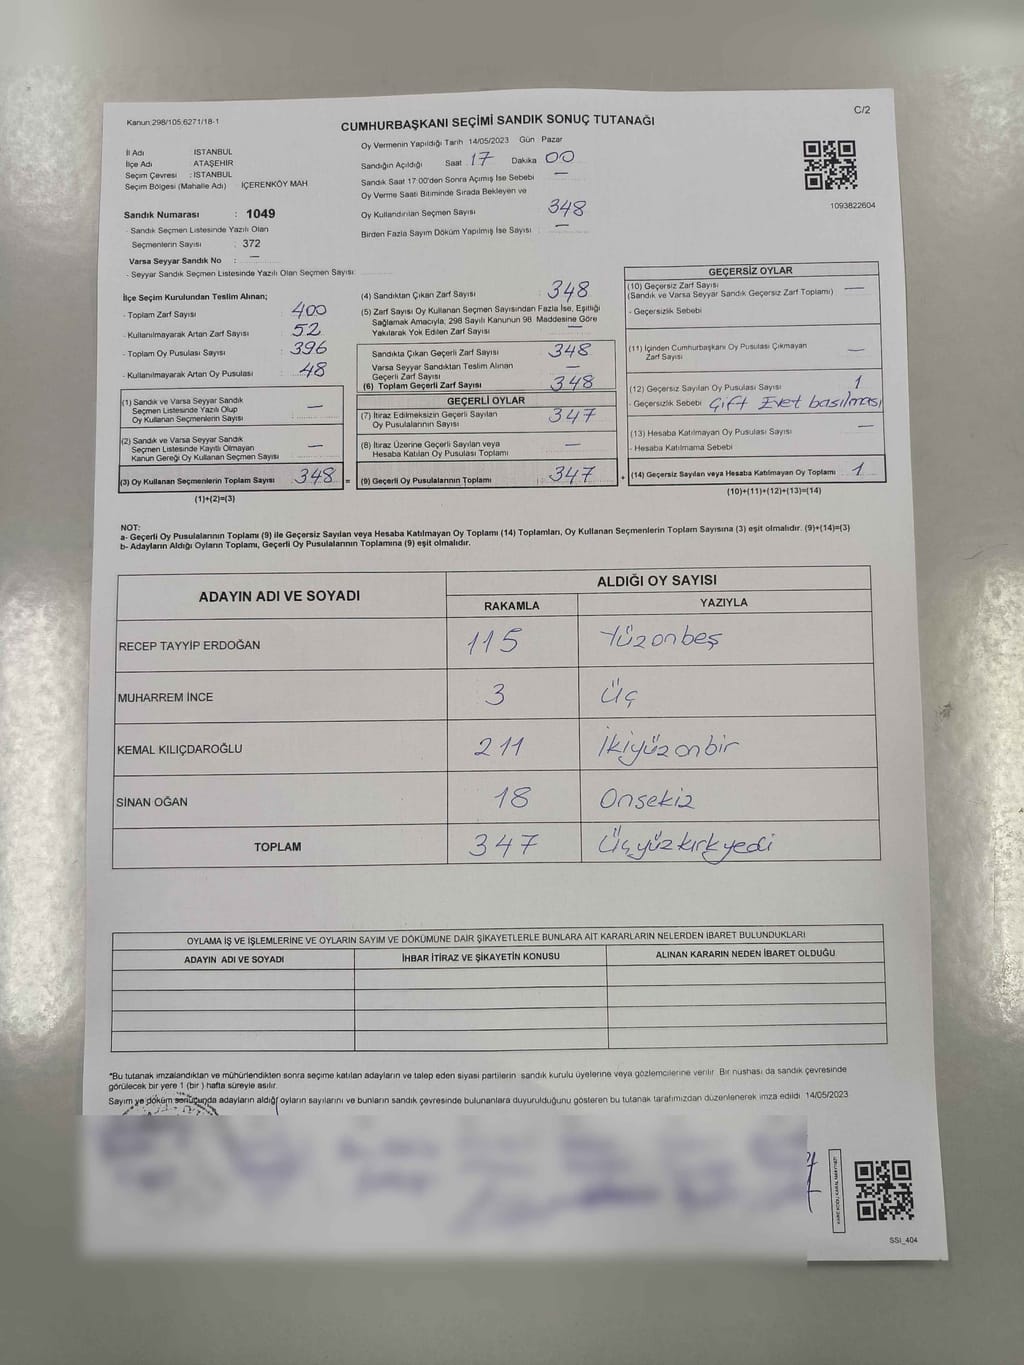 Kanun:298/105,6271/18-1
C/2
CUMHURBAŞKANI SEÇİMİ SANDIK SONUÇ TUTANAĞI
İl Adı İSTANBUL
İlçe Adı ATAŞEHİR
Seçim Çevresi : İSTANBUL
Seçim Bölgesi (Mahalle Adı) İÇERENKÖY MAH
Sandık Numarası : 1049
- Sandık Seçmen Listesinde Yazılı Olan
Seçmenlerin Sayısı : 372
Varsa Seyyar Sandık No : —
- Seyyar Sandık Seçmen Listesinde Yazılı Olan Seçmen Sayısı:
Oy Vermenin Yapıldığı Tarih 14/05/2023 Gün Pazar
Sandığın Açıldığı Saat 17 Dakika 00
Sandık Saat 17:00'den Sonra Açımış İse Sebebi —
Oy Verme Saati Bitiminde Sırada Bekleyen ve
Oy Kullandırılan Seçmen Sayısı 348
Birden Fazla Sayım Döküm Yapılmış İse Sayısı : —
1093822604
İlçe Seçim Kurulundan Teslim Alınan;
- Toplam Zarf Sayısı : 400
- Kullanılmayarak Artan Zarf Sayısı : 52
- Toplam Oy Pusulası Sayısı : 396
- Kullanılmayarak Artan Oy Pusulası : 48
(1) Sandık ve Varsa Seyyar Sandık
Seçmen Listesinde Yazılı Olup
Oy Kullanan Seçmenlerin Sayısı —
(2) Sandık ve Varsa Seyyar Sandık
Seçmen Listesinde Kayıtlı Olmayan
Kanun Gereği Oy Kullanan Seçmen Sayısı —
(3) Oy Kullanan Seçmenlerin Toplam Sayısı 348 =
(1)+(2)=(3)
(4) Sandıktan Çıkan Zarf Sayısı : 348
(5) Zarf Sayısı Oy Kullanan Seçmen Sayısından Fazla İse, Eşitliği
Sağlamak Amacıyla, 298 Sayılı Kanunun 98. Maddesine Göre
Yakılarak Yok Edilen Zarf Sayısı —
Sandıkta Çıkan Geçerli Zarf Sayısı 348
Varsa Seyyar Sandıktan Teslim Alınan
Geçerli Zarf Sayısı —
(6) Toplam Geçerli Zarf Sayısı 348
GEÇERLİ OYLAR
(7) İtiraz Edilmeksizin Geçerli Sayılan
Oy Pusulalarının Sayısı 347
(8) İtiraz Üzerine Geçerli Sayılan veya
Hesaba Katılan Oy Pusulası Toplamı —
(9) Geçerli Oy Pusulalarının Toplamı : 347 +
GEÇERSİZ OYLAR
(10) Geçersiz Zarf Sayısı
(Sandık ve Varsa Seyyar Sandık Geçersiz Zarf Toplamı) —
- Geçersizlik Sebebi
(11) İçinden Cumhurbaşkanı Oy Pusulası Çıkmayan
Zarf Sayısı —
(12) Geçersiz Sayılan Oy Pusulası Sayısı 1
- Geçersizlik Sebebi Çift Evet basılması
(13) Hesaba Katılmayan Oy Pusulası Sayısı —
- Hesaba Katılmama Sebebi
(14) Geçersiz Sayılan veya Hesaba Katılmayan Oy Toplamı 1
(10)+(11)+(12)+(13)=(14)
NOT:
a- Geçerli Oy Pusulalarının Toplamı (9) ile Geçersiz Sayılan veya Hesaba Katılmayan Oy Toplamı (14) Toplamları, Oy Kullanan Seçmenlerin Toplam Sayısına (3) eşit olmalıdır. (9)+(14)=(3)
b- Adayların Aldığı Oyların Toplamı, Geçerli Oy Pusulalarının Toplamına (9) eşit olmalıdır.
ADAYIN ADI VE SOYADI
ALDIĞI OY SAYISI
RAKAMLA YAZIYLA
RECEP TAYYİP ERDOĞAN 115 Yüzonbeş
MUHARREM İNCE 3 Üç
KEMAL KILIÇDAROĞLU 211 İkiyüzonbir
SİNAN OĞAN 18 Onsekiz
TOPLAM 347 Üçyüzkırkyedi
OYLAMA İŞ VE İŞLEMLERİNE VE OYLARIN SAYIM VE DÖKÜMÜNE DAİR ŞİKAYETLERLE BUNLARA AİT KARARLARIN NELERDEN İBARET BULUNDUKLARI
ADAYIN ADI VE SOYADI İHBAR İTİRAZ VE ŞİKAYETİN KONUSU ALINAN KARARIN NEDEN İBARET OLDUĞU
*Bu tutanak imzalandıktan ve mühürlendikten sonra seçime katılan adayların ve talep eden siyasi partilerin sandık kurulu üyelerine veya gözlemcilerine verilir. Bir nüshası da sandık çevresinde
görülecek bir yere 1 (bir) hafta süreyle asılır.
Sayım ve döküm sonucunda adayların aldığı oyların sayılarını ve bunların sandık çevresinde bulunanlara duyurulduğunu gösteren bu tutanak tarafımızdan düzenlenerek imza edildi. 14/05/2023
SSI_404